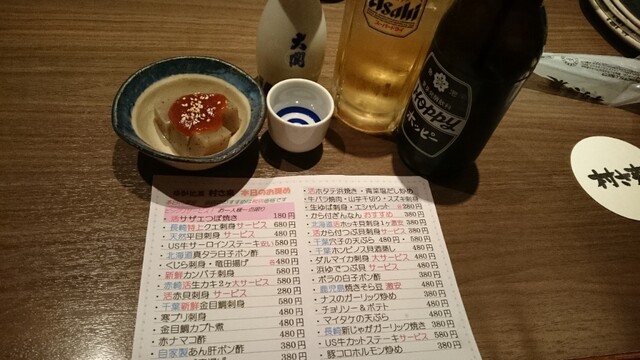 大関
Asahi
Hoppy
ホッピー
本日のお奨め
活サザエつぼ焼き 180円
長崎特上クエ刺身サービス 680円
天然平目刺身 サービス 480円
US牛サーロインステーキ安い 580円
北海道真タラ白子ポン酢 580円
くじら刺身・竜田揚げ 480円
新鮮カンパチ刺身 380円
赤崎活生カキ2ヶ大サービス 580円
活赤貝刺身 サービス 280円
千葉新鮮金目鯛刺身 580円
寒ブリ刺身 480円
金目鯛カブト煮 480円
赤ナマコ酢
自家製あん肝ポン酢
活ホタテ浜焼き・青菜塩だし炒め
牛バラ焼肉・山芋千切り・スズキ刺身
生ゆば刺身・エシャレット 380円
から付ぎんなん おすすめ 380円
北海道活ホッキ貝刺身1ヶ激安 380円
活から付つぶ貝刺身 サービス 380円
千葉穴子の天ぷら 480円・580円
千葉ホンビノス貝酒蒸し 480円
ダルマイカ刺身 大サービス 480円
浜ゆでつぶ貝 サービス 480円
ボラの白子ポン酢 380円
鹿児島焼きそら豆 激安 480円
ナスのガーリック炒め 380円
チョリソー&ポテト 480円
マイタケの天ぷら 480円
長崎新じゃがガーリック焼き 380円
US牛カットステーキサービス 580円
豚コロホルモン炒め